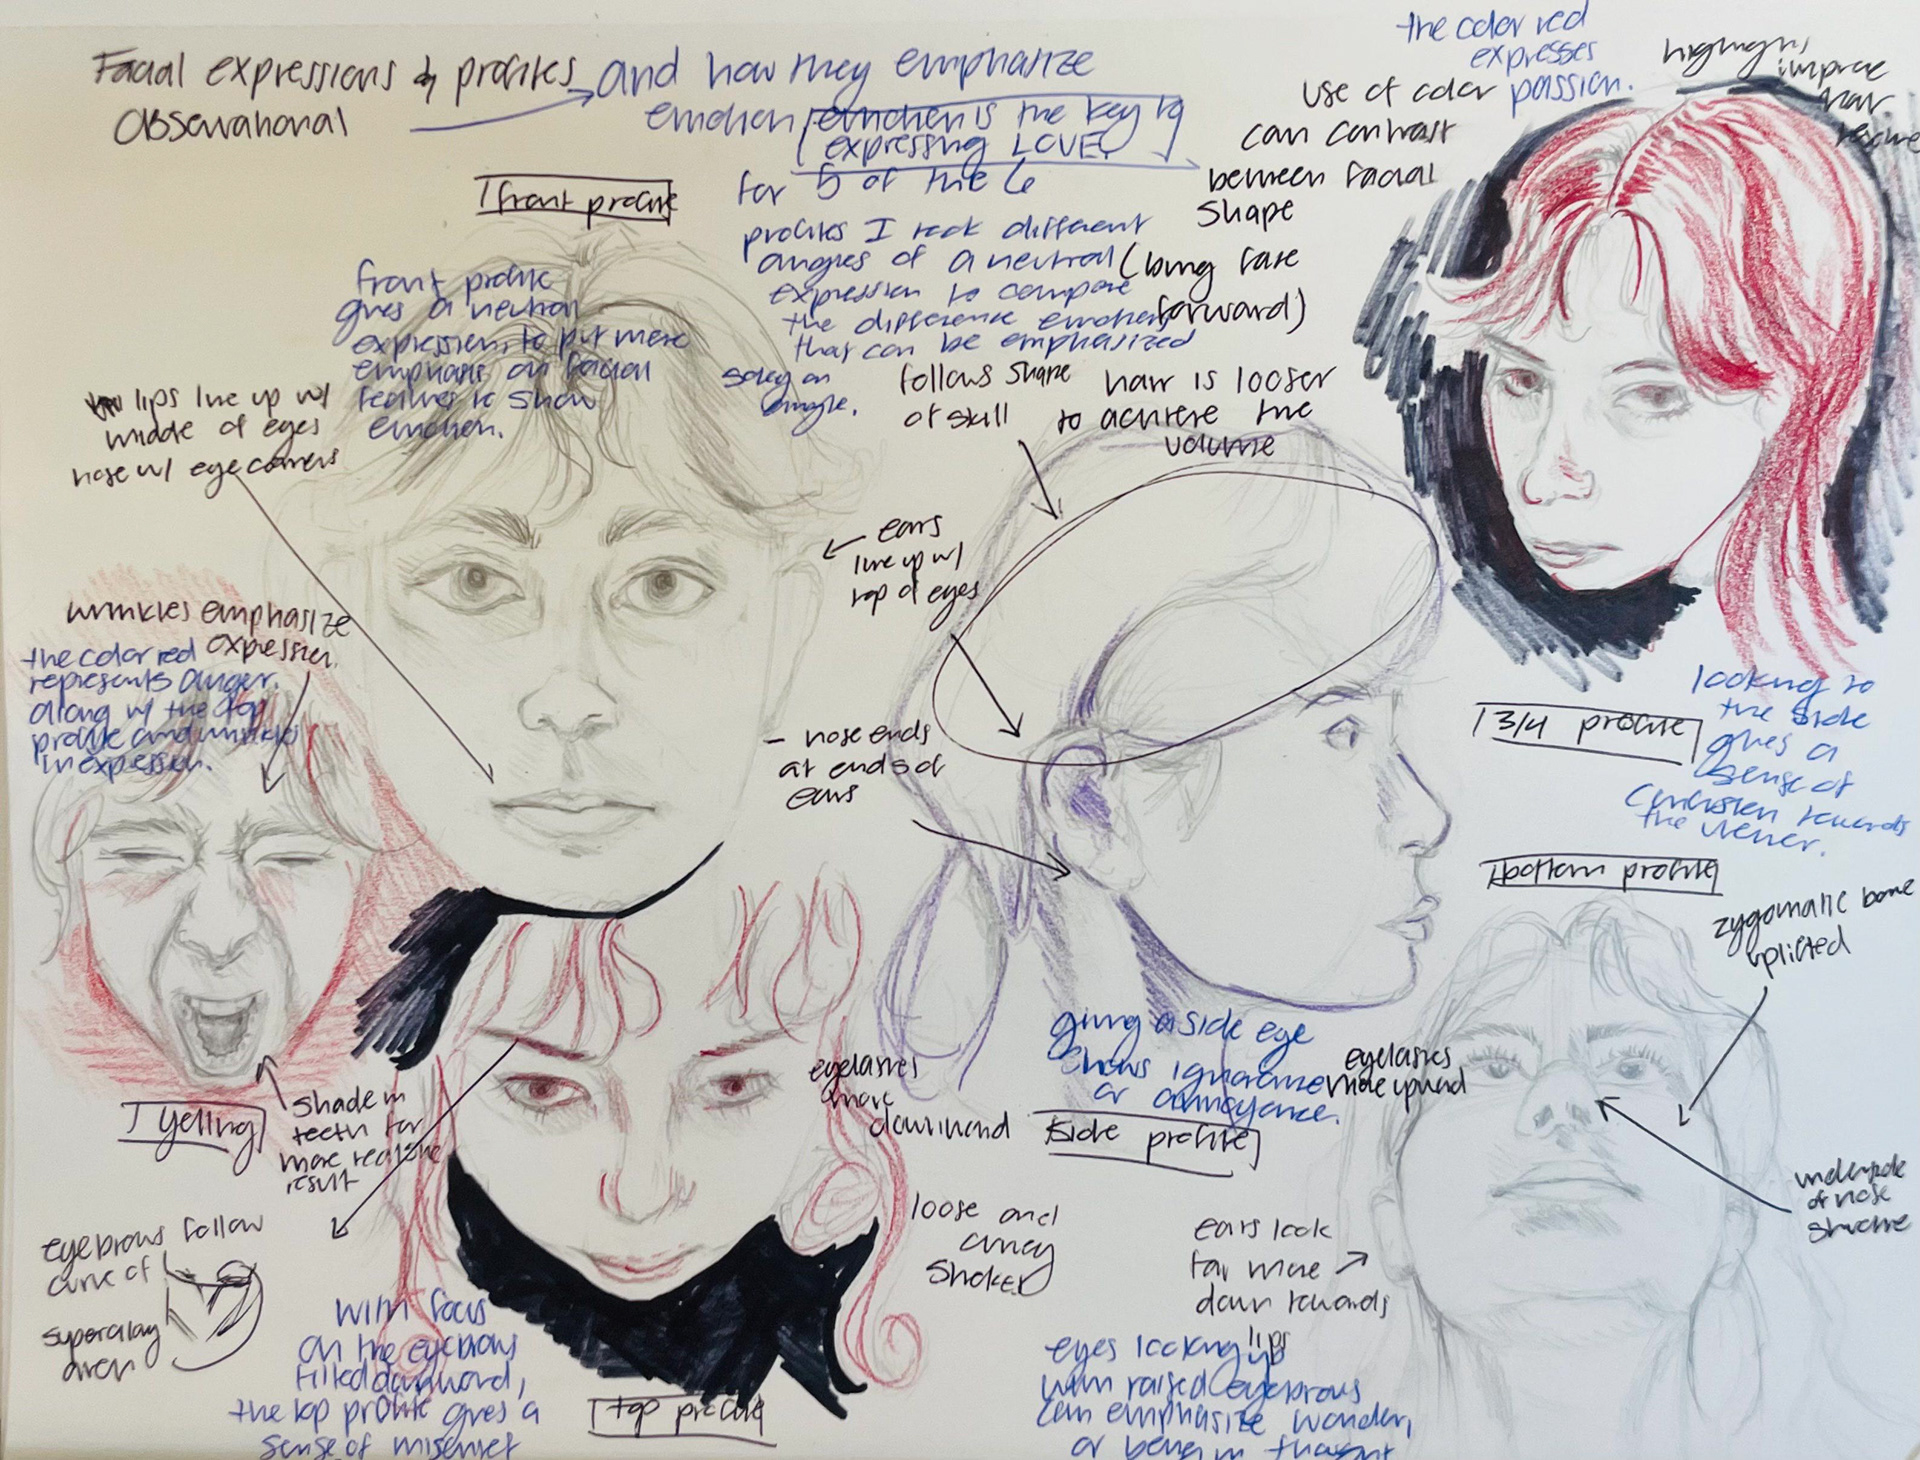 Facial expressions & profiles and how they emphasize
Observational
emotion emotion is the key to
expressing LOVE
for 5 of the 6
profiles I took different
angles of a neutral
expression to compare
the difference emotion
that can be emphasized
soley on
angle.
(bring face
forward)
the color red
expresses
passion.
use of color
can contrast
between facial
shape
highlights
improve
hair
front profile
front profile
gives a neutral
expression, to put more
emphasis on facial
features to show
emotion.
lips line up w/
middle of eyes
nose w/ eye corners
follows shape
of skull
hair is looser
to achieve the
volume
ears
line up w/
top of eyes
- nose ends
at ends of
ears
wrinkles emphasize
expression.
the color red
represents anger.
along w/ the top
profile and wrinkles
in expression.
yelling
shade in
teeth for
more realistic
result
3/4 profile
looking to
the side
gives a
sense of
confusion towards
the viewer.
bottom profile
zygomatic bone
uplifted
giving a side eye
shows ignorance
or annoyance.
side profile
eyelashes
more upward
eyelashes
more
downward
underside
of nose
structure
eyebrows follow
curve of
loose and
ears look
far more
down towards
lips
with focus
on the eyebrows
tilted downward,
the top profile gives a
sense of mischief
top profile
eyes looking up
with raised eyebrows
can emphasize wonder,
or being in thought